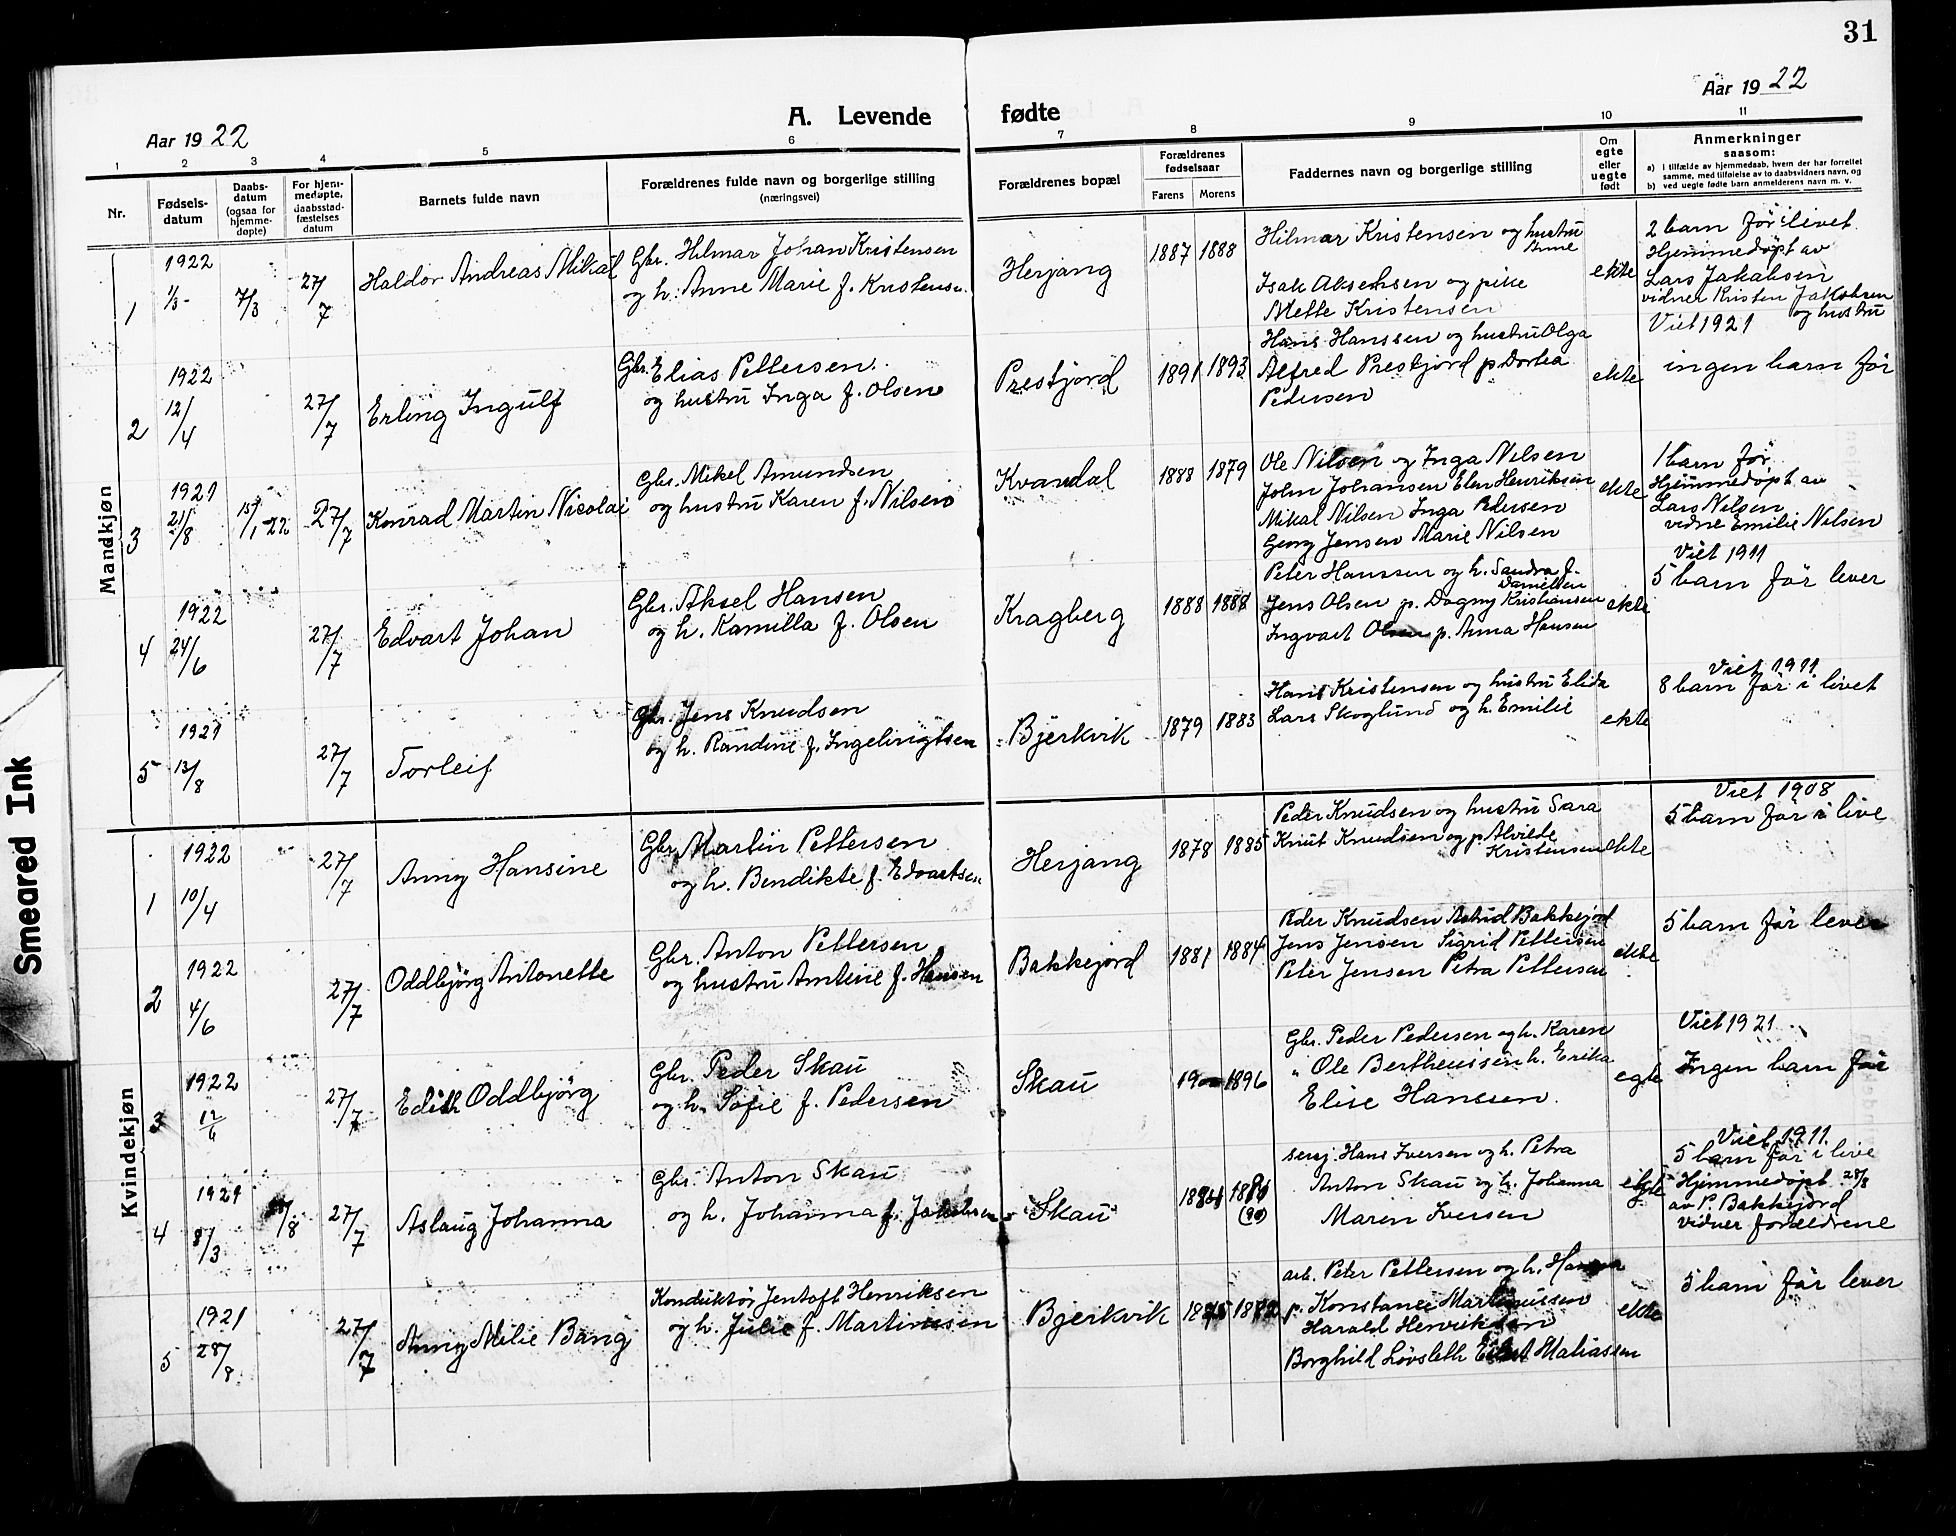 31
Aar 1922
A. Levende fødte
Aar 1922
1 2 3 4 5 6 7 8 9 10 11
Nr.
Fødsels-
datum
Daabs-
datum
(ogsaa for
hjemme-
døpte)
For hjem-
medøpte,
daabsstad-
fæstelses
datum
Barnets fulde navn
Forældrenes fulde navn og borgerlige stilling
(næringsvei)
Forældrenes bopæl
Forældrenes
fødselsaar
Farens Morens
Faddernes navn og borgerlige stilling
Om
egte
eller
uegte
født
Anmerkninger
saasom:
a) i tilfælde av hjemmedaab, hvem der har forrettet
samme, med tilføielse av to daabsvidners navn, og
b) ved uegte fødte barn anmelderens navn m. v.
Mandkjøn
1
1922
1/3
7/3
27/7
Haldor Andreas Mikal
Gbr. Hilmar Johan Kristensen
og h. Anne Marie f. Kristensen
Herjang
1887 1888
Hilmar Kristensen og hustru
Anne
Isak Aksensen og pike
Mette Kristensen
ekte
2 barn før i livet
Hjemmedøpt av
Lars Jakobsen
vidner Kristen Jakobsen
og hustru
2
1922
12/4
27/7
Erling Ingulf
Gbr. Elias Pettersen
og hustru Inga f. Olsen
Prestjord
1891 1893
Hans Hanssen og hustru Olga
Alfred Prestjord p. Dortea
Pedersen
ekte
Viet 1921
ingen barn før
3
1921
21/8
15/1-22
27/7
Konrad Martin Nicolai
Gbr. Mikel Amundsen
og hustru Karen f. Nilsen
Kvandal
1888 1879
Ole Nilsen og Inga Nilsen
John Johansen Elen Henriksen
Mikal Nilsen Inga Pedersen
Georg Jensen Marie Nilsen
ekte
1 barn før
Hjemmedøpt av
Lars Nilsen
vidne Emilie Nilsen
4
1922
24/6
27/7
Edvart Johan
Gbr. Aksel Hansen
og h. Kamilla f. Olsen
Kragberg
1888 1888
Peter Hanssen og h. Sandra f.
Danielsen
Jens Olsen p. Dagny Kristiansen
Ingvart Olsen p. Anna Hansen
ekte
Viet 1911
5 barn før lever
5
1921
13/8
27/7
Torleif
Gbr. Jens Knudsen
og h. Randine f. Ingebrigtsen
Bjerkvik
1879 1883
Hans Kristensen og hustru Elida
Lars Skoglund og h. Emilie
ekte
Viet 1911
8 barn før i livet
Kvindekjøn
1
1922
10/4
27/7
Anny Hansine
Gbr. Martin Pettersen
og h. Bendikte f. Edvartsen
Herjang
1878 1885
Peder Knudsen og hustru Sara
Knut Knudsen og p. Alvilde
Kristensen
ekte
Viet 1908
5 barn før i live
2
1922
4/6
27/7
Oddbjörg Antonette
Gbr. Anton Pettersen
og hustru Antine f. Hansen
Bakkejord
1881 1884
Peder Knudsen Astrid Bakkejord
Jens Jensen Sigrid Pettersen
Peter Jensen Petra Pettersen
ekte
5 barn før lever
3
1922
12/6
27/7
Edith Oddbjörg
Gbr. Peder Skau
og h. Sofie f. Pedersen
Skau
1900 1896
Gbr. Peder Pedersen og h. Karen
" Ole Bertheussen h. Erika
Elise Hanssen.
egte
Viet 1921
Ingen barn før
4
1921
8/3
27/7
Aslaug Johanna
Gbr. Anton Skau
og h. Johanna f. Jakobsen
Skau
(90)
Sersj. Hans Iversen og h. Petra
Anton Skau og h. Johanna
Maren Iversen
egte
Viet 1911
5 barn før i live
Hjemmedøpt 28/8
av P. Bakkejord
vidner foreldrene
5
1921
28/8
27/7
Anny Milie Bang
Konduktør Jentoft Henriksen
og h. Julie f. Martinussen
Bjerkvik
1882
arb. Peter Pettersen og h.
p. Konstance Martinussen
Harald Henriksen
Borghild Løvsleth Matiassen
ekte
5 barn før lever
Smeared Ink